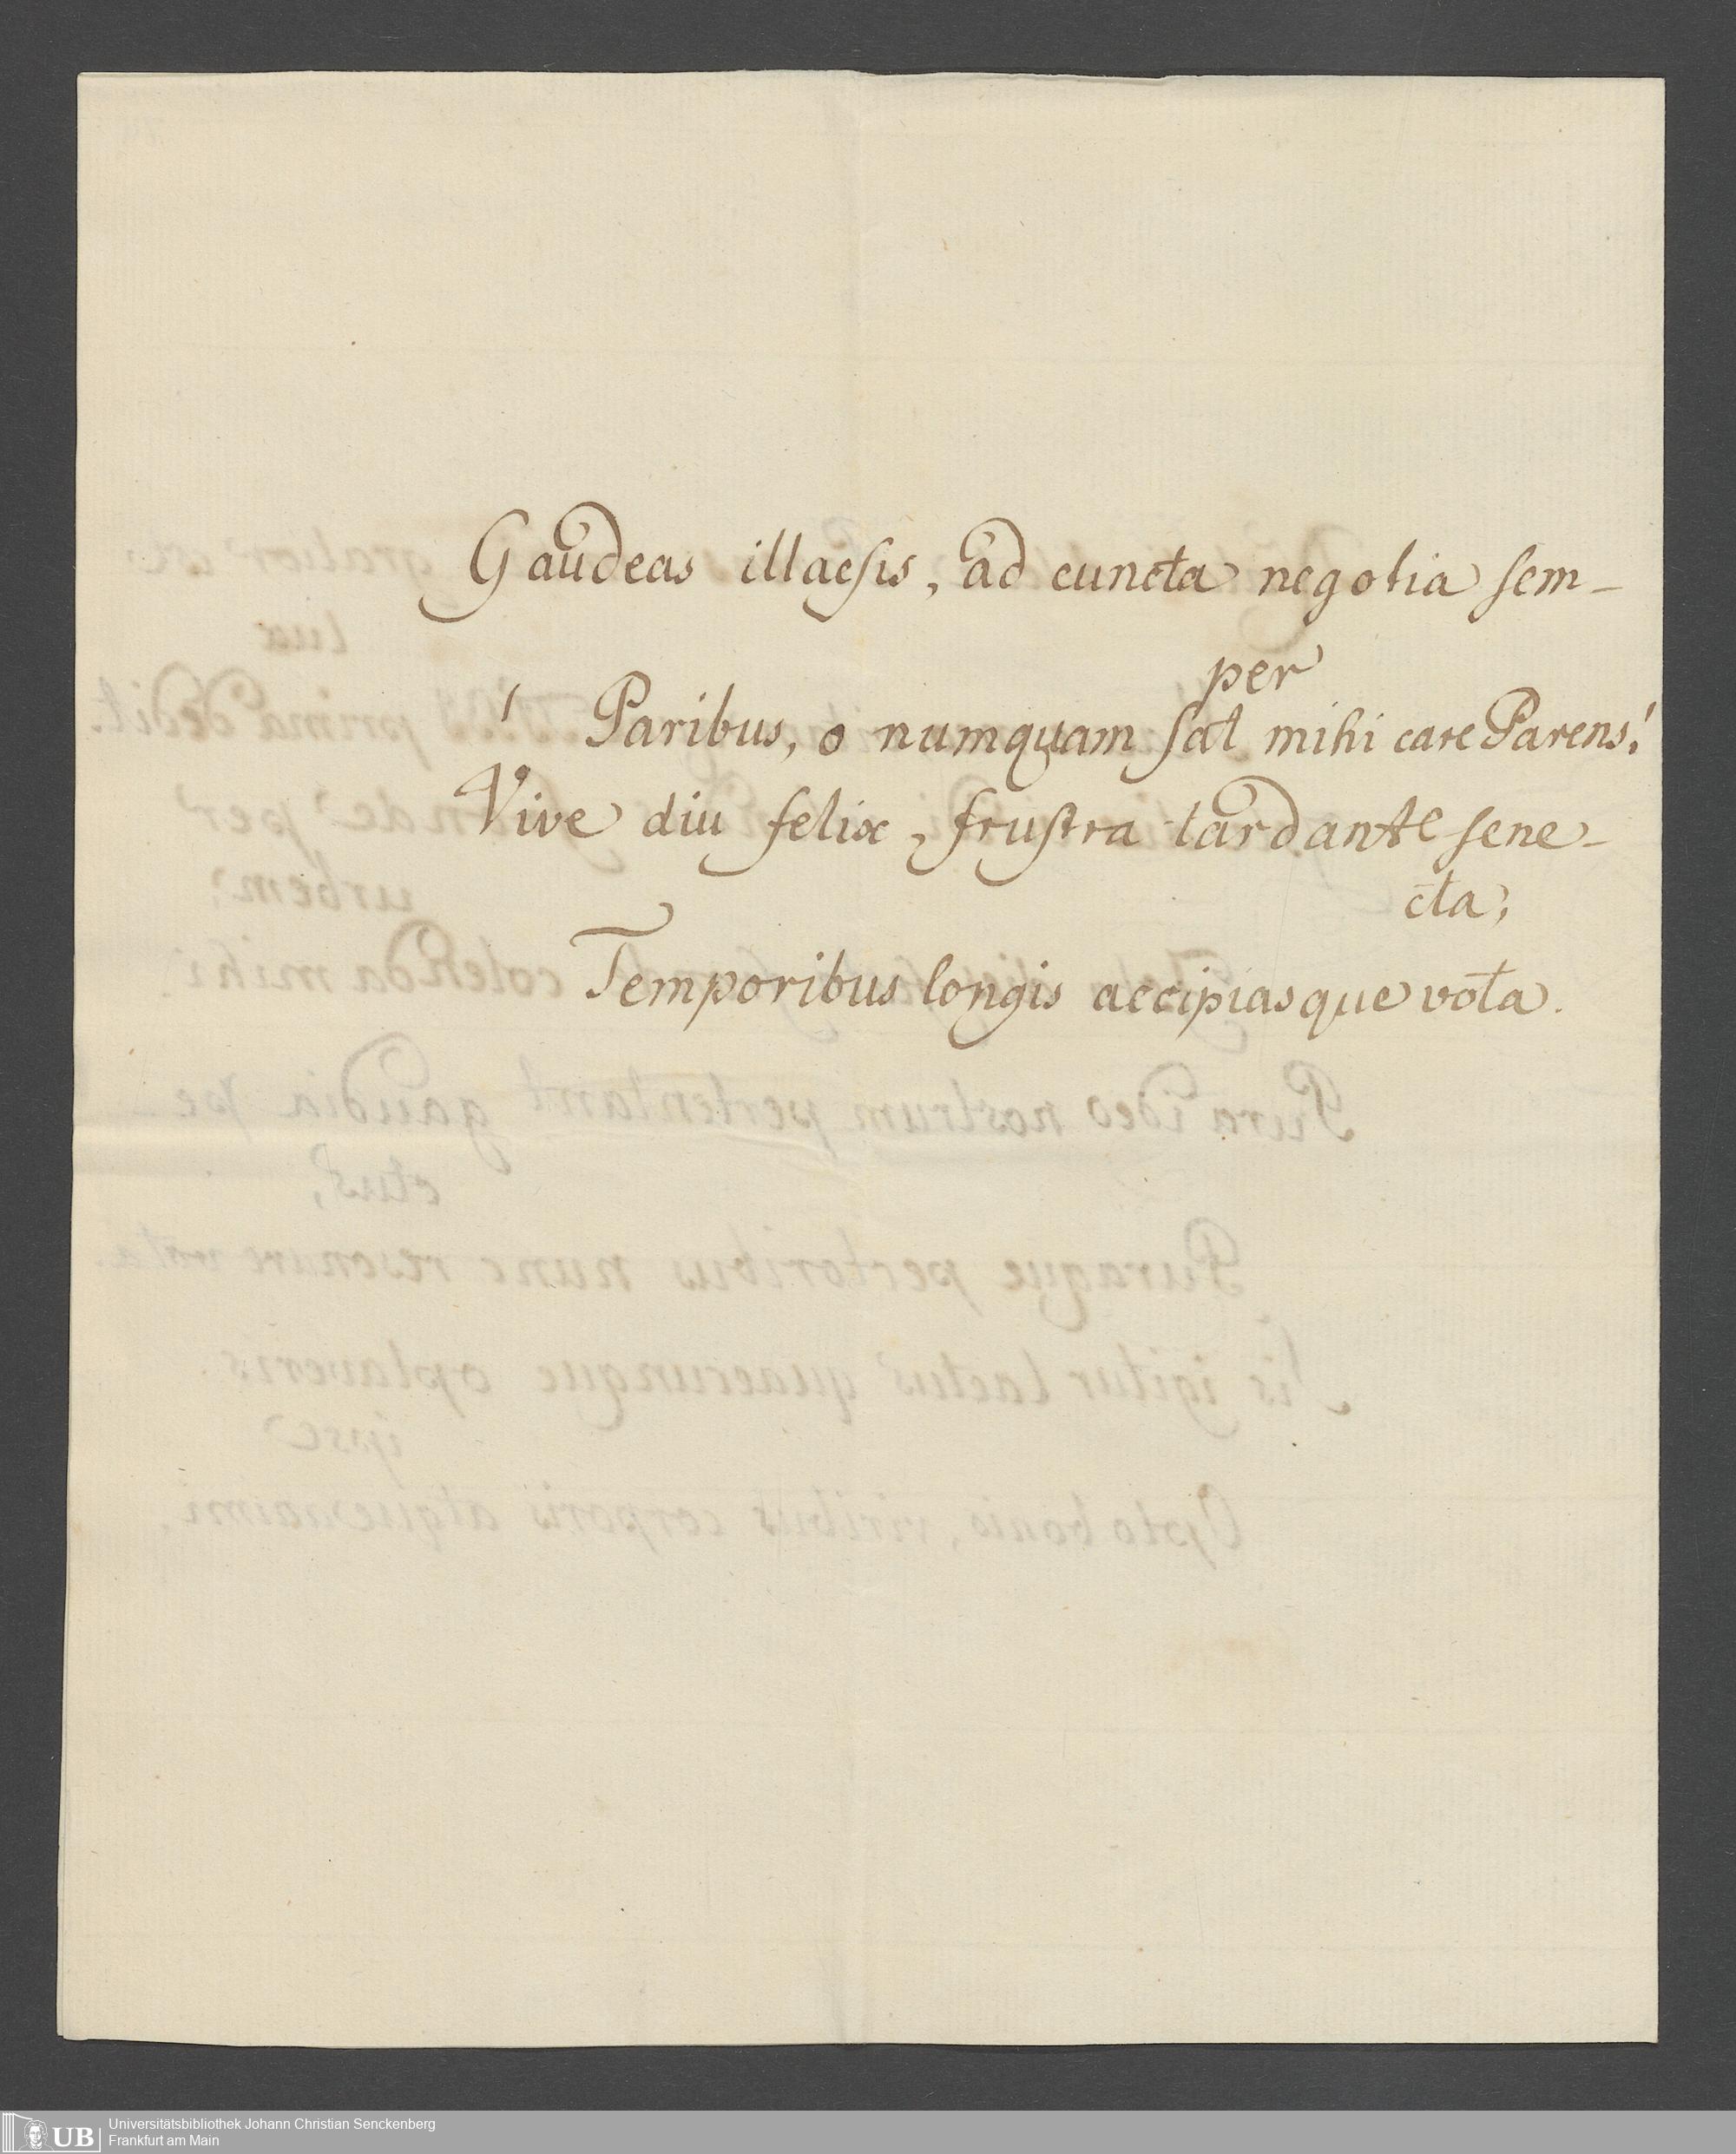 Gaudeas illaesis, ad cuncta negotia sem-
per
Paribus, o numquam sat mihi care Parens!
Vive diu felix, frustra tardante sene-
cta;
Temporibus longis accipiasque vota.
UB
Universitätsbibliothek Johann Christian Senckenberg
Frankfurt am Main